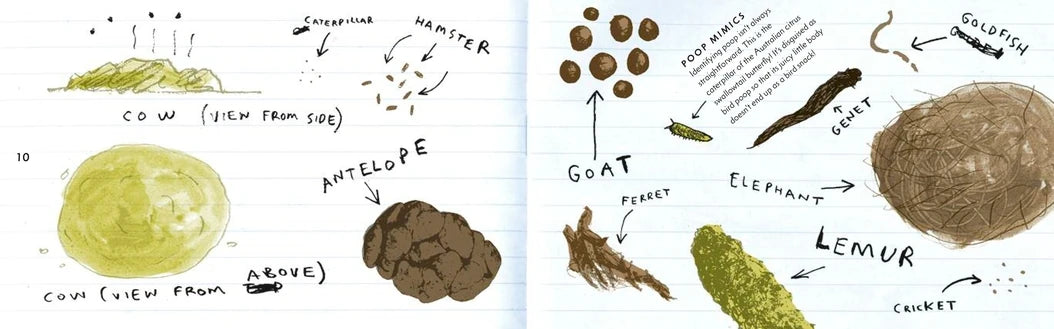 CATERPILLAR
HAMSTER
COW (VIEW FROM SIDE)
10
ANTELOPE
COW (VIEW FROM ABOVE)
GOAT
POOP MIMICS
Identifying poop isn't always
straightforward. This is the
caterpillar of the Australian citrus
swallowtail butterfly! It's disguised as
bird poop so that its juicy little body
doesn't end up as a bird snack!
GENET
GOLDFISH
ELEPHANT
FERRET
LEMUR
CRICKET